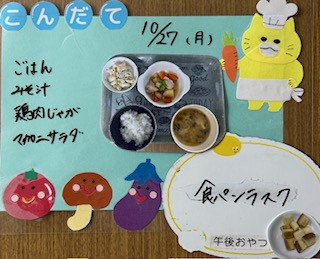 こんだて
10/27（月）
ごはん
みそ汁
鶏肉じゃが
マカロニサラダ
食パンラスク
午後おやつ